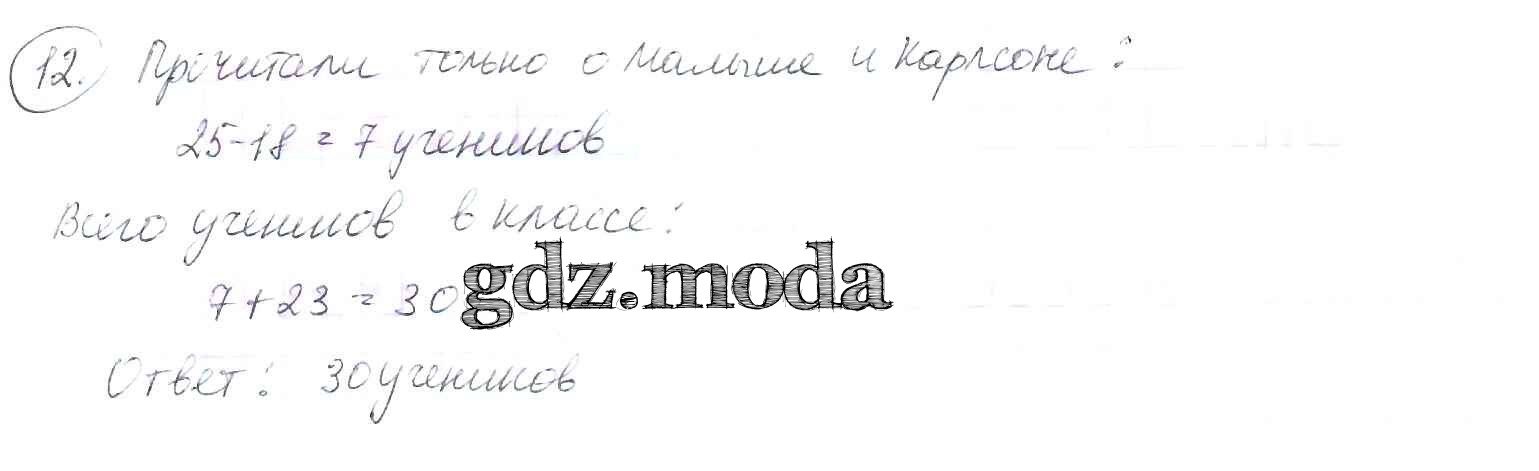 12. Прочитали только о Малыше и Карлсоне:
25-18 = 7 учеников
Всего учеников в классе:
7+23 = 30 gdz.moda
Ответ: 30 учеников